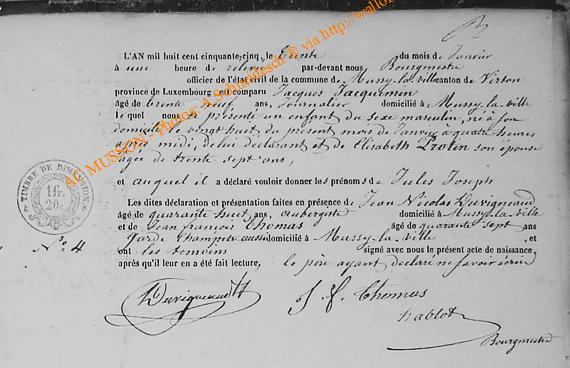 L'AN mil huit cent cinquante-cinq, le trente du mois de Janvier
à une heure de relevée par-devant nous, Bourgmestre
officier de l'état civil de la commune de Mussy-la-ville canton de Virton
province de Luxembourg est comparu Jacques Jacquemin
âgé de trente neuf ans, Journalier domicilié à Mussy-la-ville
le quel nous a présenté un enfant du sexe masculin, né à son
domicile le vingt huit du présent mois de Janvier à quatre heures
après midi, de lui déclarant et de Elisabeth Protin son épouse
agée de trente sept ans,
et auquel il a déclaré vouloir donner les prénoms de Jules Joseph
Les dites déclaration et présentation faites en présence de Jean Nicolas Duvigneaud
âgé de quarante huit ans, aubergiste domicilié à Mussy-la-ville
et de Jean françois Thomas âgé de quarante sept ans
Garde Champêtre aussi domicilié à Mussy-la-ville et
ont les temoins signé avec nous le présent acte de naissance,
après qu'il leur en a été fait lecture, le père ayant declaré ne savoir écrire
N° 4
TIMBRE DE DIMENSION
Duvigneaud
J. f. Thomas
hablot
Bourgmestre
MUSSON - Photos: A. Schlendesor © via http://wallo